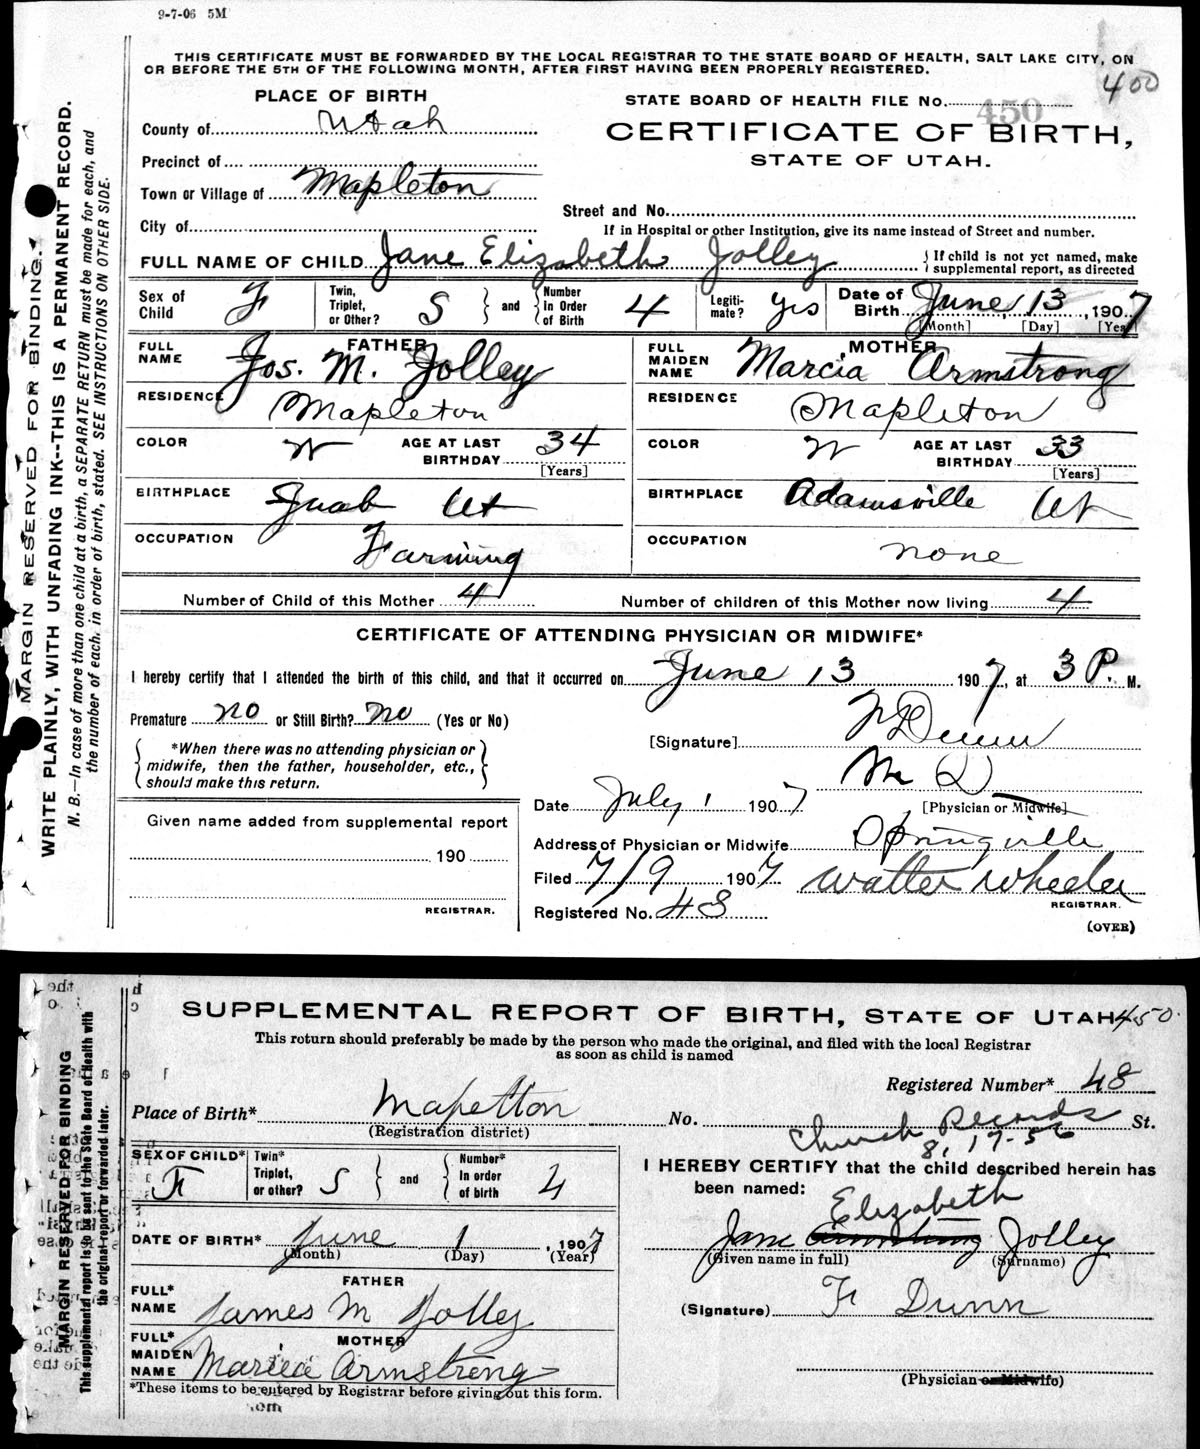 9-7-06 5M
THIS CERTIFICATE MUST BE FORWARDED BY THE LOCAL REGISTRAR TO THE STATE BOARD OF HEALTH, SALT LAKE CITY, ON
OR BEFORE THE 5TH OF THE FOLLOWING MONTH, AFTER FIRST HAVING BEEN PROPERLY REGISTERED.
400
PLACE OF BIRTH
STATE BOARD OF HEALTH FILE No. 450
County of Utah
CERTIFICATE OF BIRTH,
STATE OF UTAH.
Precinct of
Town or Village of Mapleton
Street and No.
City of
If in Hospital or other Institution, give its name instead of Street and number.
FULL NAME OF CHILD Jane Elizabeth Jolley
{ If child is not yet named, make supplemental report, as directed
Sex of Child F Twin, Triplet, or Other? S } and { Number In Order of Birth 4 Legitimate? yes Date of Birth June 13, 1907
[Month] [Day] [Year]
FATHER MOTHER
FULL NAME Jos. M. Jolley FULL MAIDEN NAME Marcia Armstrong
RESIDENCE Mapleton RESIDENCE Mapleton
COLOR W AGE AT LAST BIRTHDAY 34 [Years] COLOR W AGE AT LAST BIRTHDAY 33 [Years]
BIRTHPLACE Juab Ut BIRTHPLACE Adamsville Ut
OCCUPATION Farming OCCUPATION none
Number of Child of this Mother 4 Number of children of this Mother now living 4
CERTIFICATE OF ATTENDING PHYSICIAN OR MIDWIFE*
I hereby certify that I attended the birth of this child, and that it occurred on June 13 1907, at 3 P. M.
Premature no or Still Birth? no (Yes or No)
[Signature] F Dunn
M D
{ *When there was no attending physician or midwife, then the father, householder, etc., should make this return. }
Date July 1 1907 [Physician or Midwife]
Given name added from supplemental report
190
REGISTRAR.
Address of Physician or Midwife Springville
Filed 7/9 1907 Walter Wheeler
REGISTRAR.
Registered No. 48
(OVER)
MARGIN RESERVED FOR BINDING.
WRITE PLAINLY, WITH UNFADING INK--THIS IS A PERMANENT RECORD.
N. B.—In case of more than one child at a birth, a SEPARATE RETURN must be made for each, and
the number of each, in order of birth, stated. SEE INSTRUCTIONS ON OTHER SIDE.
SUPPLEMENTAL REPORT OF BIRTH, STATE OF UTAH 450.
This return should preferably be made by the person who made the original, and filed with the local Registrar
as soon as child is named
Registered Number* 48
Place of Birth* Mapelton No. St.
(Registration district)
Church Records
8, 17-56
SEX OF CHILD* F Twin* Triplet, or other? S } and { Number* In order of birth 4
I HEREBY CERTIFY that the child described herein has
been named:
Elizabeth
Jane Armstrong Jolley
(Given name in full) (Surname)
DATE OF BIRTH* June 1, 1907
(Month) (Day) (Year)
FATHER
FULL* NAME James M Jolley
(Signature) F Dunn
MOTHER
FULL* MAIDEN NAME Mariea Armstrong
(Physician or Midwife)
*These items to be entered by Registrar before giving out this form.
MARGIN RESERVED FOR BINDING
This supplemental report is to be sent to the State Board of Health with
the original report or forwarded later.